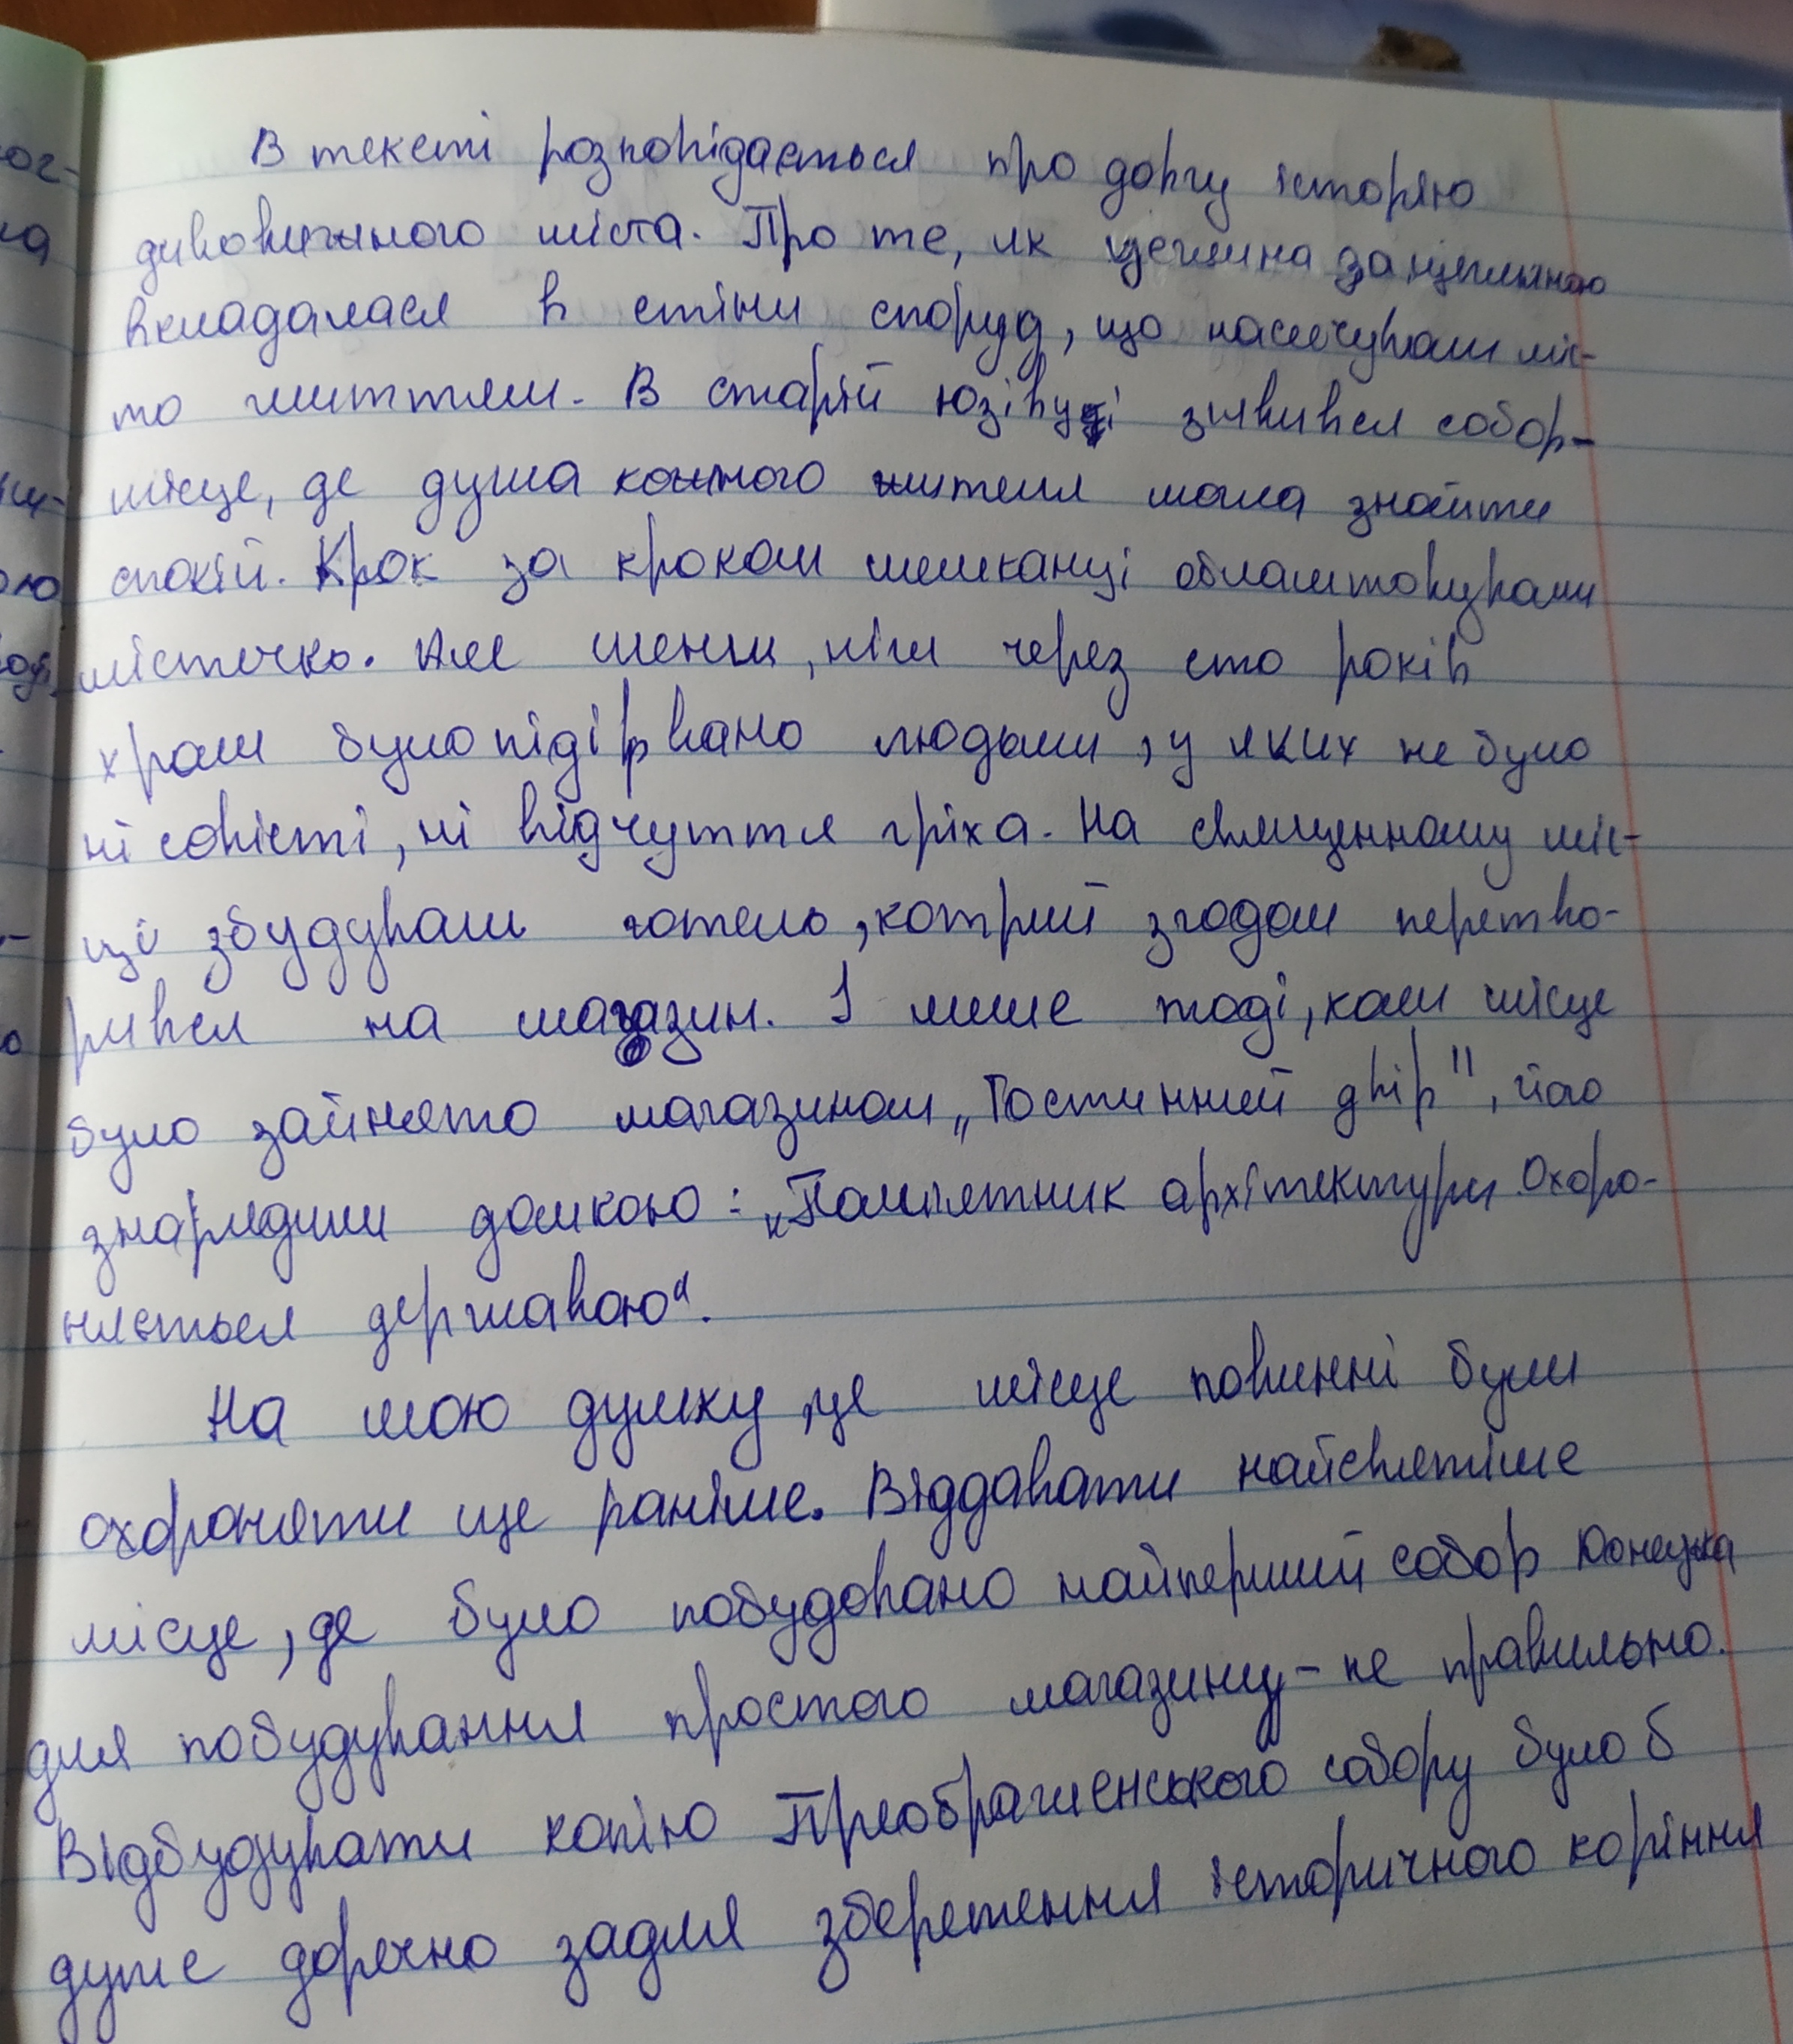 В тексті розповідається про довгу історію
дивовижного міста. Про те, як цеглина за цеглиною
вкладалася в стіни споруд, що насичували міс-
то життям. В старій юзівці зʼявився собор-
місце, де душа кожного жителя мала знайти
спокій. Крок за кроком мешканці облаштовували
містечко. Але менш, ніж через сто років
храм було підірвано людьми, у яких не було
ні совісті, ні відчуття гріха. На священному міс-
ці збудували готель, котрий згодом перетво-
рився на магазин. І лише тоді, коли місце
було зайнято магазином „Гостинний двір", його
знарядили дошкою: „Памʼятник архітектури. Охоро-
няється державою".
На мою думку, це місце повинні були
охороняти ще раніше. Віддавати найсвятіше
місце, де було побудовано найперший собор Донецька
для побудування простого магазину - не правильно.
Відбудувати копію Преображенського собору було б
дуже доречно задля збереження історичного коріння